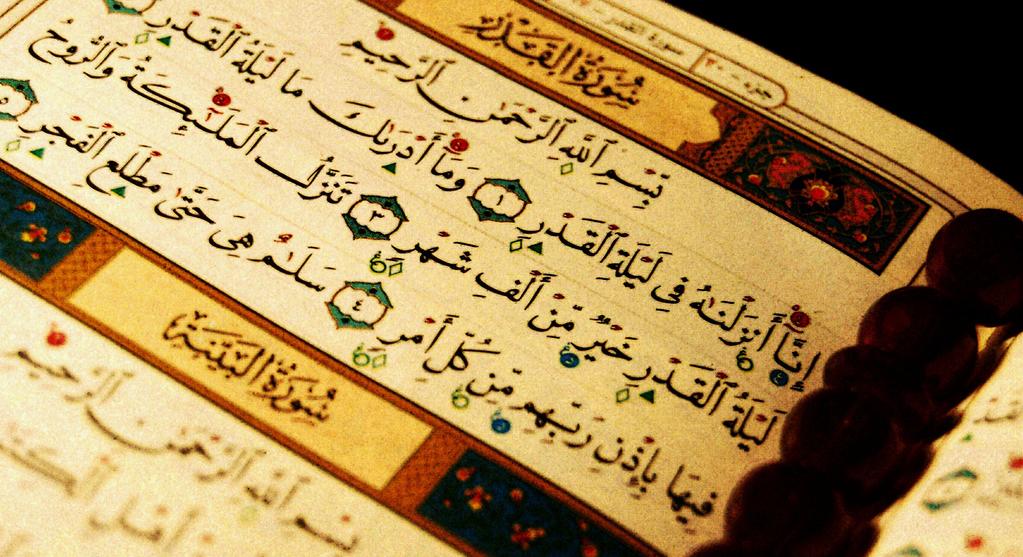 جزء - ٣٠
سورة القدر
سُورَةُ الْقَدْرِ
بِسْمِ ٱللَّهِ ٱلرَّحْمَٰنِ ٱلرَّحِيمِ
إِنَّآ أَنزَلْنَٰهُ فِى لَيْلَةِ ٱلْقَدْرِ ١ وَمَآ أَدْرَىٰكَ مَا لَيْلَةُ ٱلْقَدْرِ
لَيْلَةُ ٱلْقَدْرِ خَيْرٌ مِّنْ أَلْفِ شَهْرٍ ٣ تَنَزَّلُ ٱلْمَلَٰٓئِكَةُ وَٱلرُّوحُ
فِيهَا بِإِذْنِ رَبِّهِم مِّن كُلِّ أَمْرٍ ٤ سَلَٰمٌ هِىَ حَتَّىٰ مَطْلَعِ ٱلْفَجْرِ ٥
سُورَةُ الْبَيِّنَةِ
بِسْمِ ٱللَّهِ ٱلرَّحْمَٰنِ ٱلرَّحِيمِ